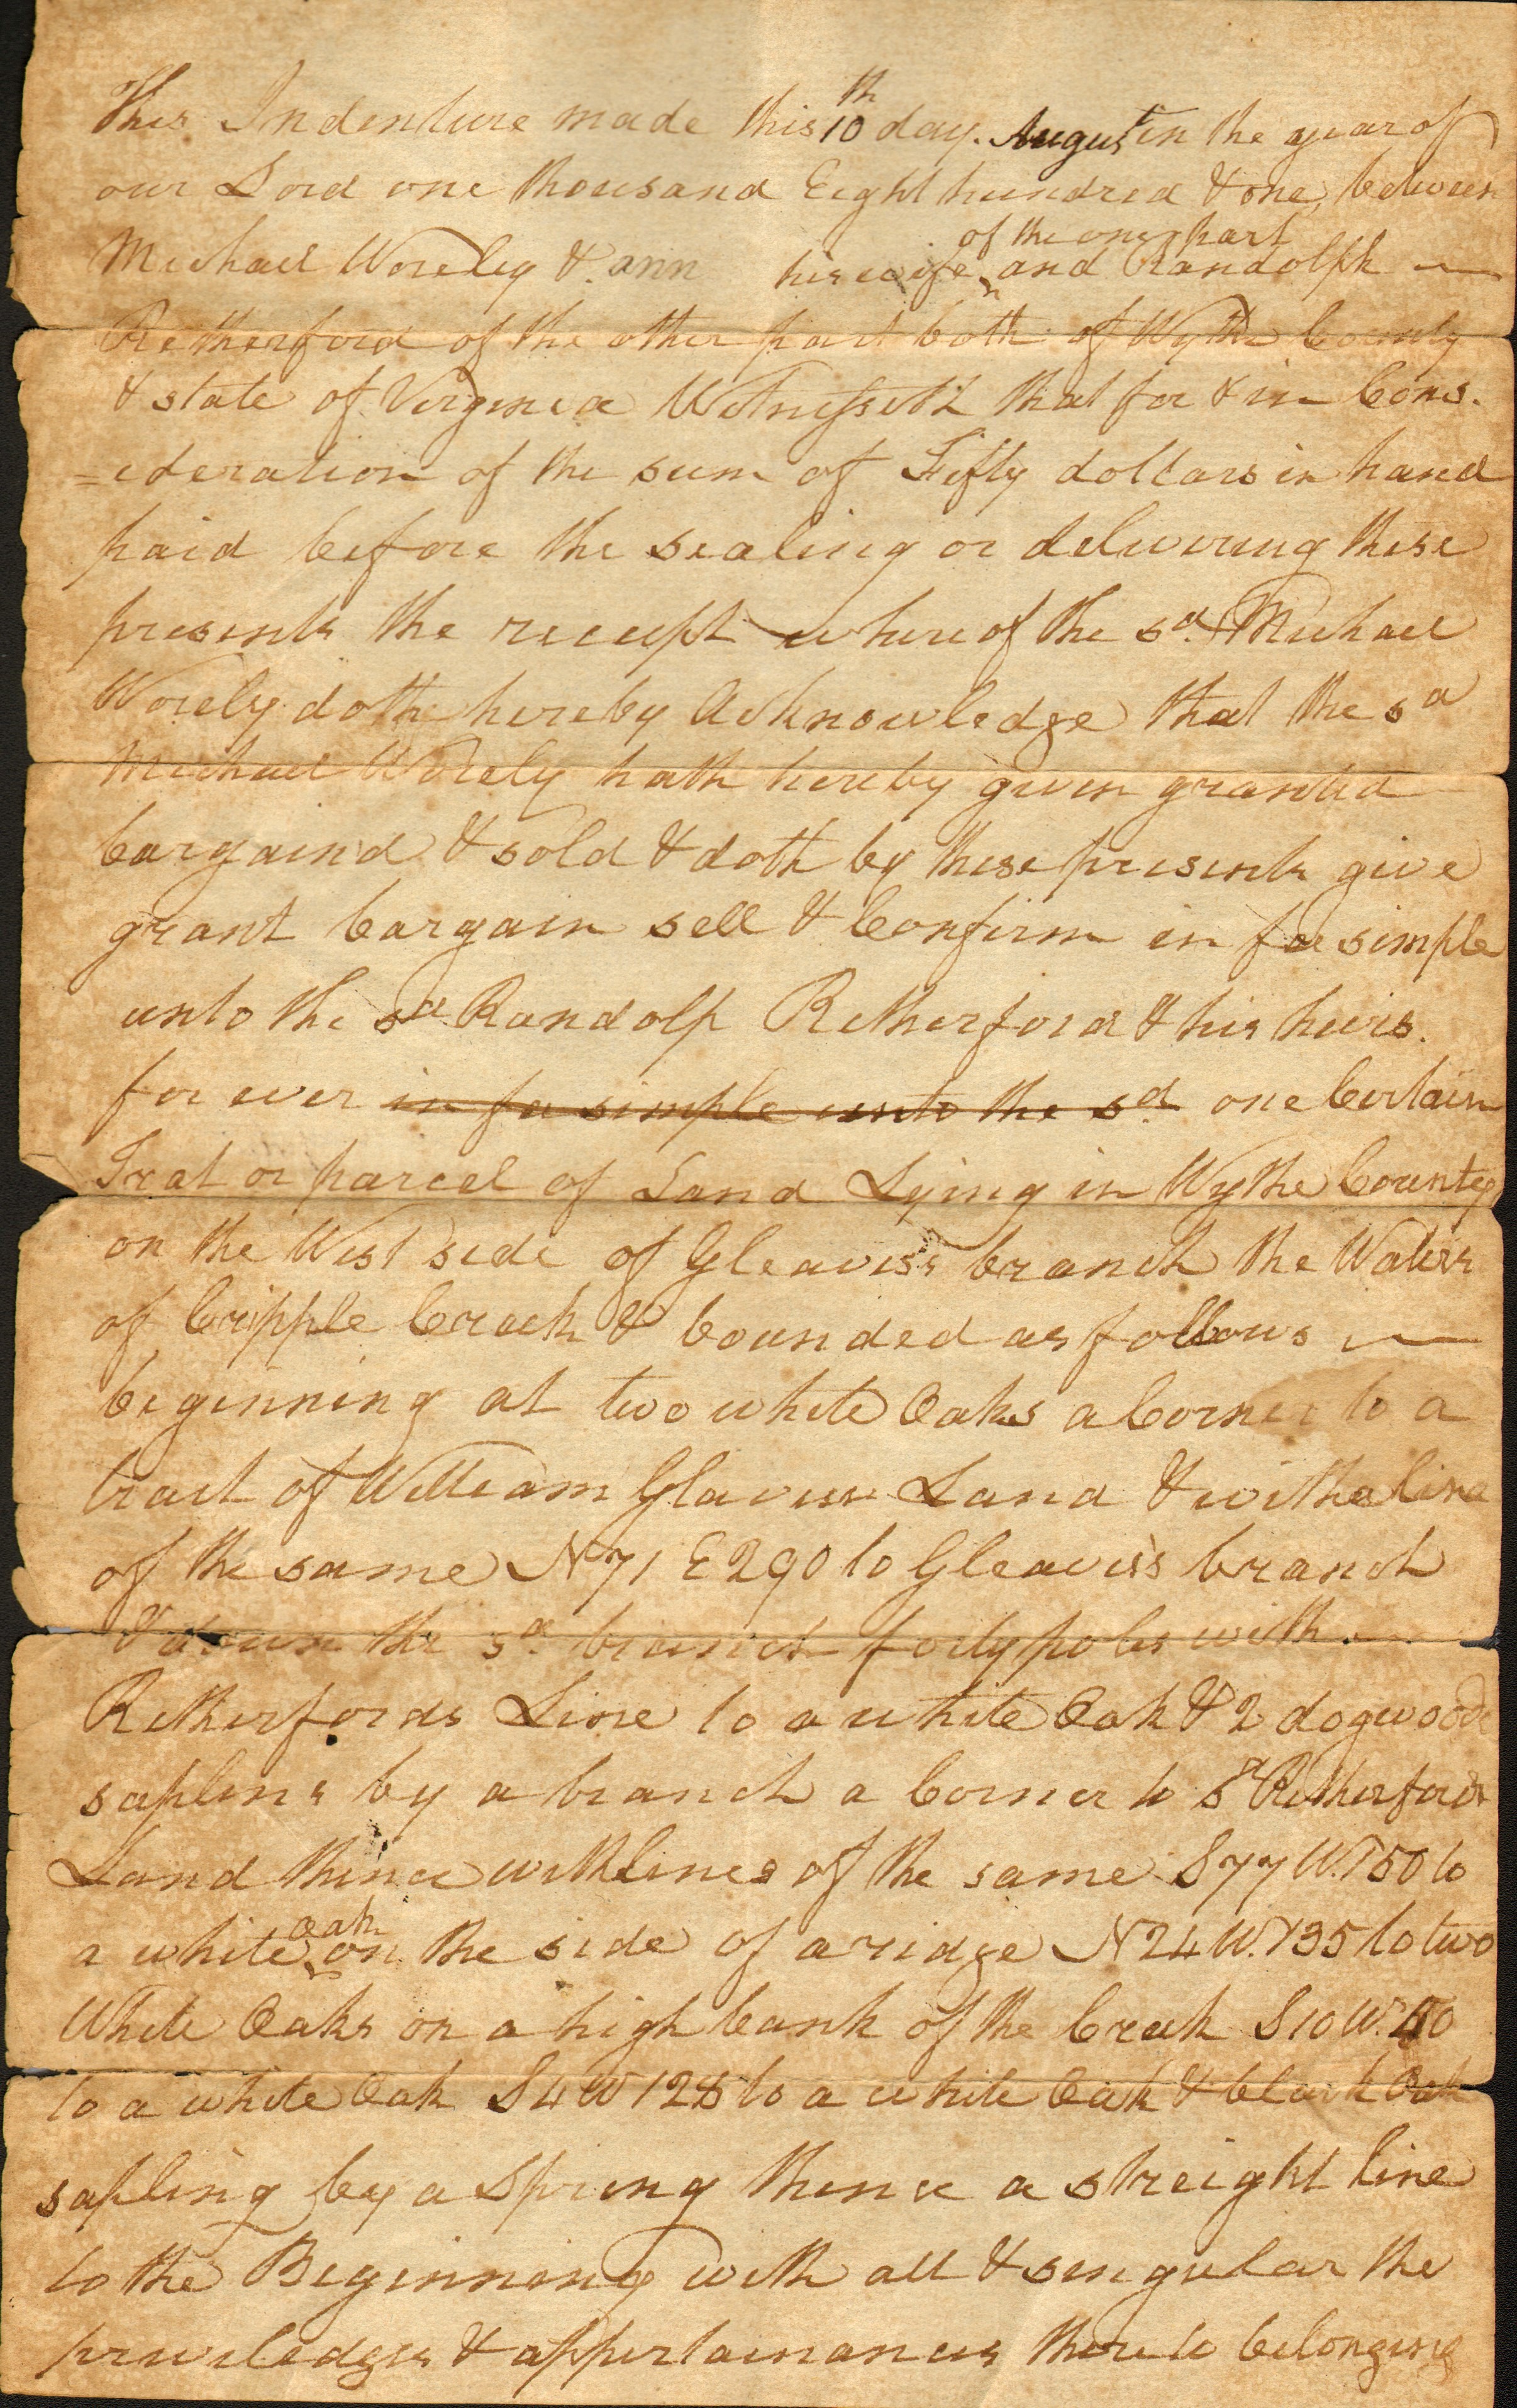 This Indenture made this 10th day. August in the year of
our Lord one thousand Eight hundred & one, between
Michael Worely & ann his wife of the one part and Randolph
Retherford of the other part both of Wythe County
& state of Virginia Witnesseth that for & in Cons.
=ideration of the sum of Fifty dollars in hand
paid before the sealing or delivering these
presents the receipt whereof the sd. Michael
Worely doth hereby Acknowledge that the sd
Michael Worely hath hereby given granted
bargaind & sold & doth by these presents give
grant bargain sell & Confirm in fee simple
unto the sd Randolp Retherford & his heirs.
for ever in fee simple unto the sd one Certain
Trat or parcel of Land Lying in Wythe County
on the West side of Gleaves's branch the Waters
of Cripple Creek & bounded as follows
beginning at two white Oaks a Corner to a
tract of William Glaves Land & with a line
of the same N 71 E 290 to Gleaves's branch
& down the sd. branch forty poles with
Retherfords Line to a white Oak & 2 dogwood
saplins by a branch a Corner to sd Retherfords
Land thence with lines of the same S 77 W. 150 to
a white Oak on the side of a ridge N 24 W. 135 to two
White Oaks on a high bank of the Creek S 10 W. 40
to a white Oak S 4 W 128 to a white Oak & black Oak
sapling by a spring thence a streight line
to the Beginning with all & singular the
priviledges & appertainances thereto belonging